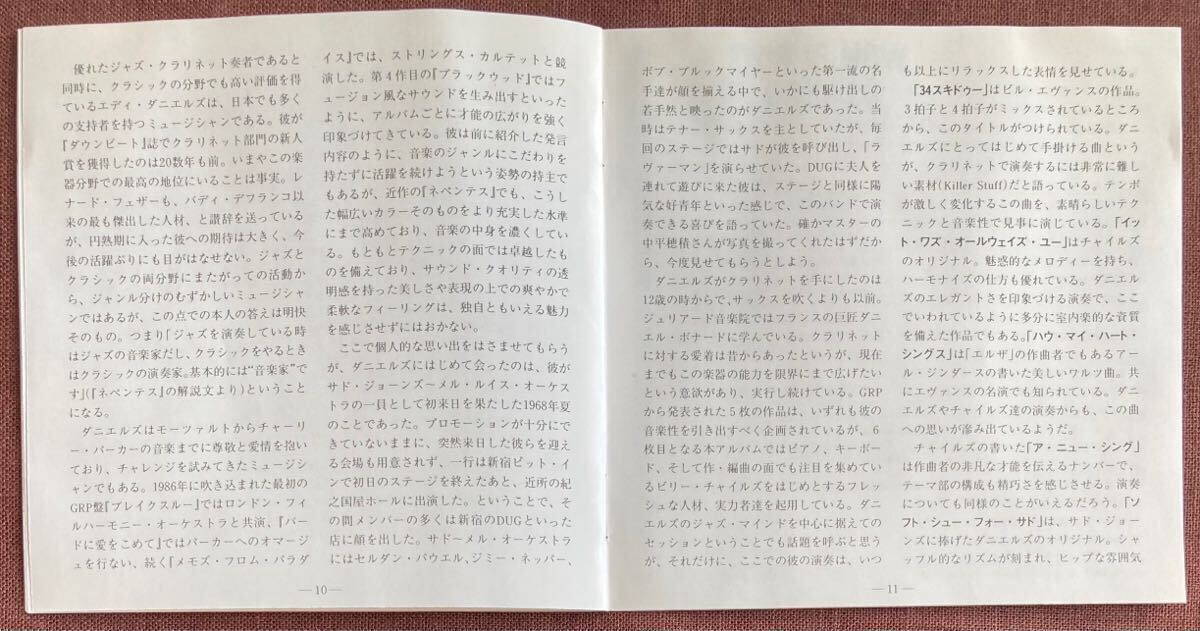 優れたジャズ・クラリネット奏者であると
同時に、クラシックの分野でも高い評価を得
ているエディ・ダニエルズは、日本でも多く
の支持者を持つミュージシャンである。彼が
『ダウンビート』誌でクラリネット部門の新人
賞を獲得したのは20数年も前。いまやこの楽
器分野での最高の地位にいることは事実。レ
ナード・フェザーも、バディ・デフランコ以
来の最も傑出した人材、と讃辞を送っている
が、円熟期に入った彼への期待は大きく、今
後の活躍ぶりにも目がはなせない。ジャズと
クラシックの両分野にまたがっての活動か
ら、ジャンル分けのむずかしいミュージシャ
ンではあるが、この点での本人の答えは明快
そのもの。つまり「ジャズを演奏している時
はジャズの音楽家だし、クラシックをやるとき
はクラシックの演奏家。基本的には“音楽家”で
す」(『ネペンテス』の解説文より)ということ
になる。
ダニエルズはモーツァルトからチャーリ
ー・パーカーの音楽までに尊敬と愛情を抱い
ており、チャレンジを試みてきたミュージシ
ャンでもある。1986年に吹き込まれた最初の
GRP盤『ブレイクスルー』ではロンドン・フィ
ルハーモニー・オーケストラと共演、『バー
ドに愛をこめて』ではパーカーへのオマージ
ュを行ない、続く『メモズ・フロム・パラダ
イス』では、ストリングス・カルテットと競
演した。第4作目の『ブラックウッド』ではフ
ュージョン風なサウンドを生み出すといった
ように、アルバムごとに才能の広がりを強く
印象づけてきている。彼は前に紹介した発言
内容のように、音楽のジャンルにこだわりを
持たずに活躍を続けようという姿勢の持主で
もあるが、近作の『ネペンテス』でも、こうし
た幅広いカラーそのものをより充実した水準
にまで高めており、音楽の中身を濃くしてい
る。もともとテクニックの面では卓越したも
のを備えており、サウンド・クオリティの透
明感を持った美しさや表現の上での爽やかで
柔軟なフィーリングは、独自ともいえる魅力
を感じさせずにはおかない。
ここで個人的な思い出をはさませてもらう
が、ダニエルズにはじめて会ったのは、彼が
サド・ジョーンズ〜メル・ルイス・オーケス
トラの一員として初来日を果たした1968年夏
のことであった。プロモーションが十分にで
きていないままに、突然来日した彼らを迎え
る会場も用意されず、一行は新宿ピット・イ
ンで初日のステージを終えたあと、近所の紀
之国屋ホールに出演した。ということで、そ
の間メンバーの多くは新宿のDUGといった
店に顔を出した。サド〜メル・オーケストラ
にはセルダン・パウエル、ジミー・ネッパー、
—10—
ボブ・ブルックマイヤーといった第一流の名
手達が顔を揃える中で、いかにも駆け出しの
若手然と映ったのがダニエルズであった。当
時はテナー・サックスを主としていたが、毎
回のステージではサドが彼を呼び出し、「ラ
ヴァーマン」を演らせていた。DUGに夫人を
連れて遊びに来た彼は、ステージと同様に陽
気な好青年といった感じで、このバンドで演
奏できる喜びを語っていた。確かマスターの
中平穂積さんが写真を撮ってくれたはずだか
ら、今度見せてもらうとしよう。
ダニエルズがクラリネットを手にしたのは
12歳の時からで、サックスを吹くよりも以前。
ジュリアード音楽院ではフランスの巨匠ダニ
エル・ボナードに学んでいる。クラリネット
に対する愛着は昔からあったというが、現在
までもこの楽器の能力を限界にまで広げたい
という意欲があり、実行し続けている。GRP
から発表された5枚の作品は、いずれも彼の
音楽性を引き出すべく企画されているが、6
枚目となる本アルバムではピアノ、キーボー
ド、そして作・編曲の面でも注目を集めてい
るビリー・チャイルズをはじめとするフレッ
シュな人材、実力者達を起用している。ダニ
エルズのジャズ・マインドを中心に据えての
セッションということでも話題を呼ぶと思う
が、それだけに、ここでの彼の演奏は、いつ
も以上にリラックスした表情を見せている。
「34スキドゥー」はビル・エヴァンスの作品。
3拍子と4拍子がミックスされているところ
から、このタイトルがつけられている。ダニ
エルズにとってはじめて手掛ける曲という
が、クラリネットで演奏するには非常に難し
い素材(Killer Stuff)だと語っている。テンポ
が激しく変化するこの曲を、素晴らしいテク
ニックと音楽性で見事に演じている。「イッ
ト・ワズ・オールウェイズ・ユー」はチャイルズ
のオリジナル。魅惑的なメロディーを持ち、
ハーモナイズの仕方も優れている。ダニエル
ズのエレガントさを印象づける演奏で、ここ
でいわれているように多分に室内楽的な音質
を備えた作品でもある。「ハウ・マイ・ハート・
シングス」は「エルザ」の作曲者でもあるアー
ル・ジンダースの書いた美しいワルツ曲。共
にエヴァンスの名演でも知られている。ダニ
エルズやチャイルズ達の演奏からも、この曲
への思いが滲み出ているようだ。
チャイルズの書いた「ア・ニュー・シング」
は作曲者の非凡な才能を伝えるナンバーで、
テーマ部の構成も精巧さを感じさせる。演奏
についても同様のことがいえるだろう。「ソ
フト・シュー・フォー・サド」は、サド・ジョー
ンズに捧げたダニエルズのオリジナル。シャ
ッフル的なリズムが刻まれ、ヒップな雰囲気
—11—